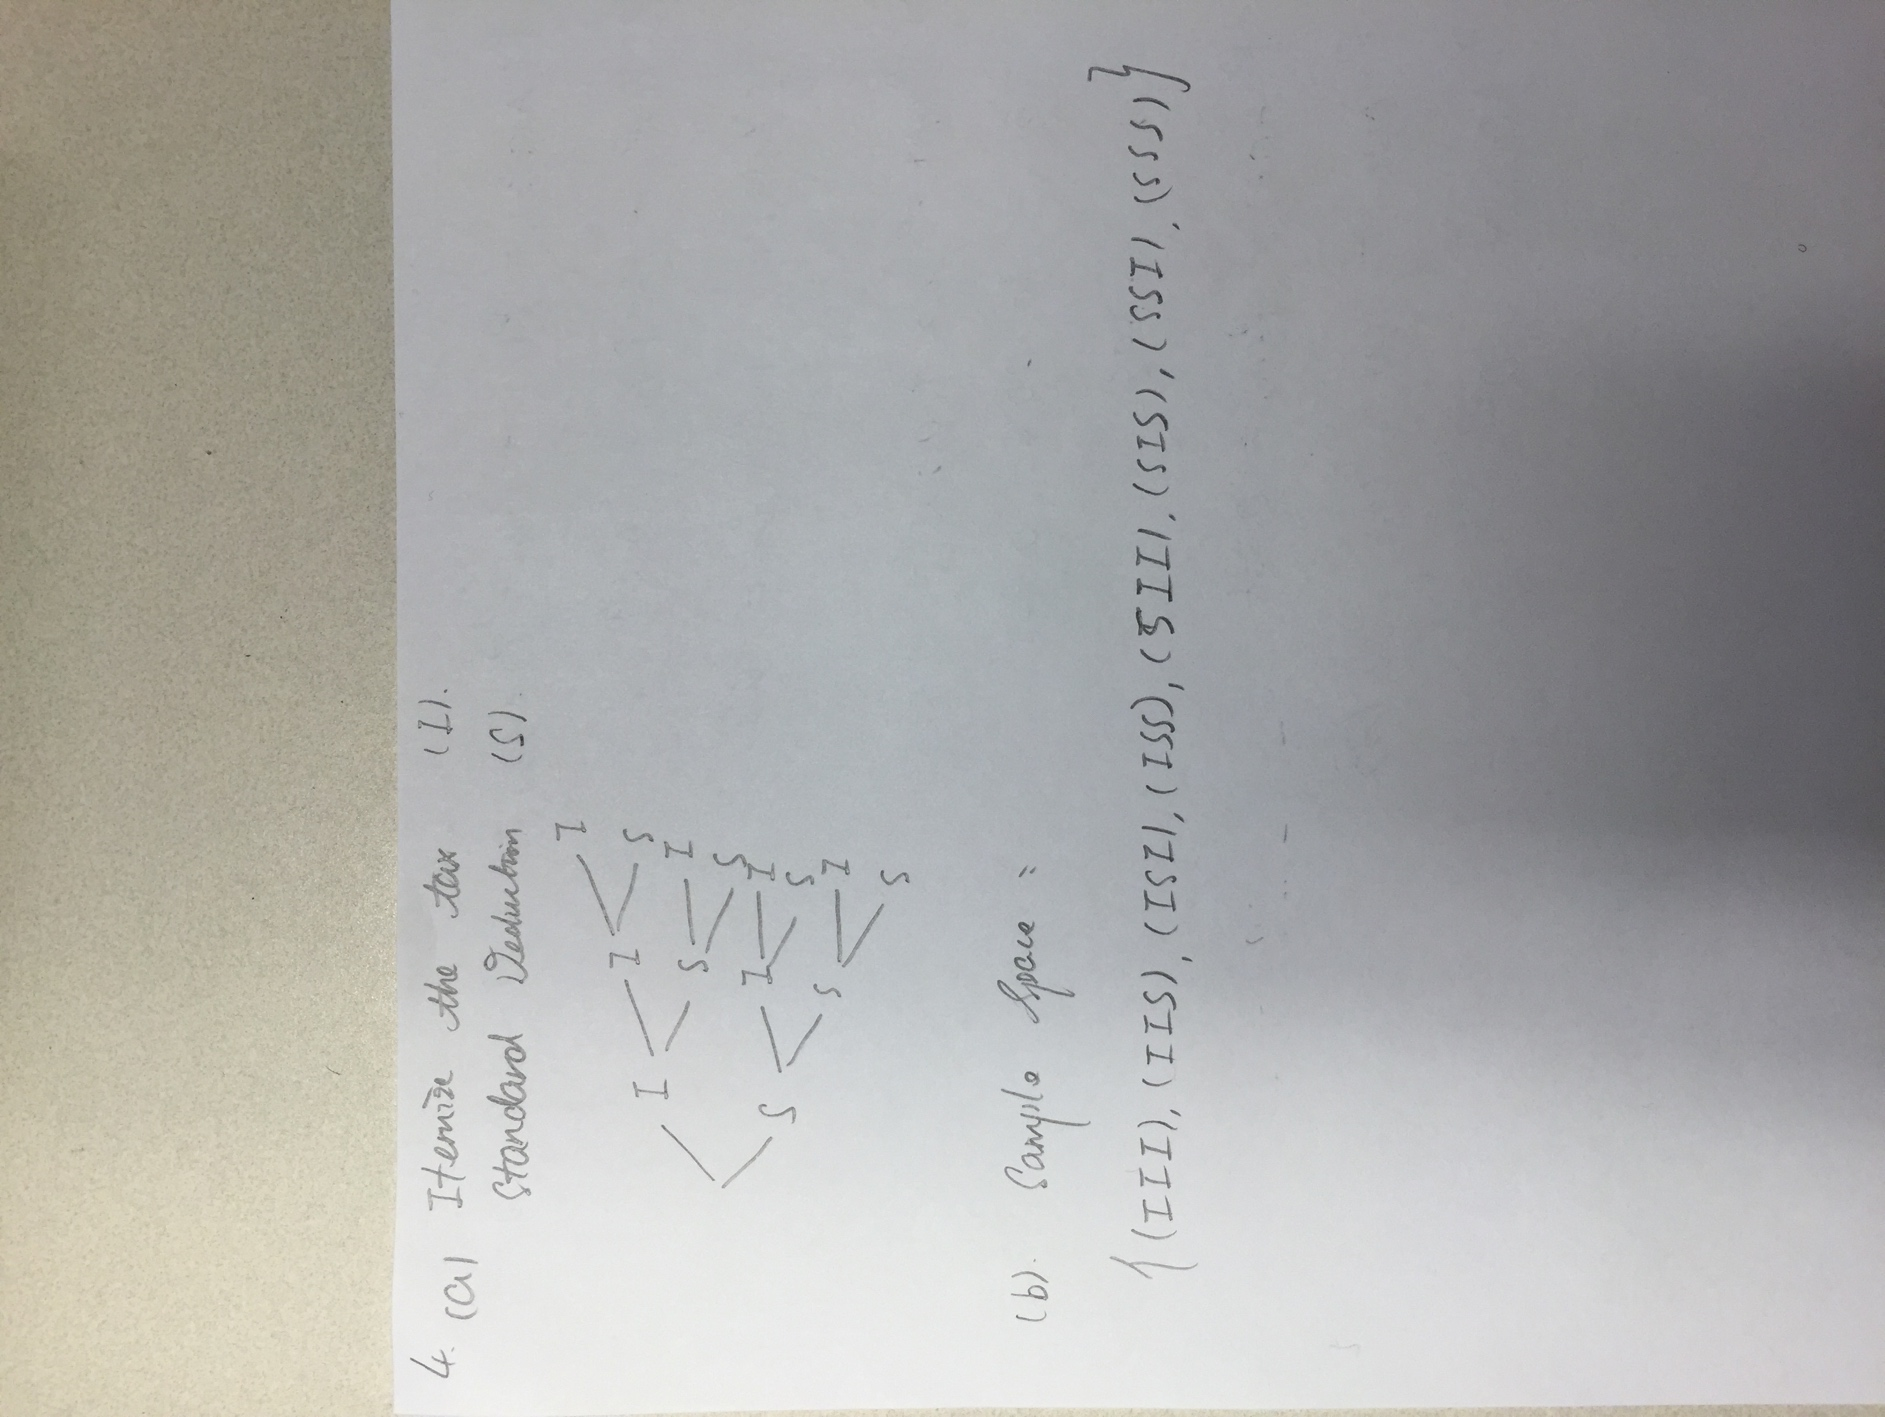 4. (a) Itemize the tax (I).
Standard Deduction (S).
I
I
I
S
S
I
S
S
I
I
S
S
I
S
(b). Sample Space =
{(III), (IIS), (ISI), (ISS), (SII), (SIS), (SSI), (SSS)}